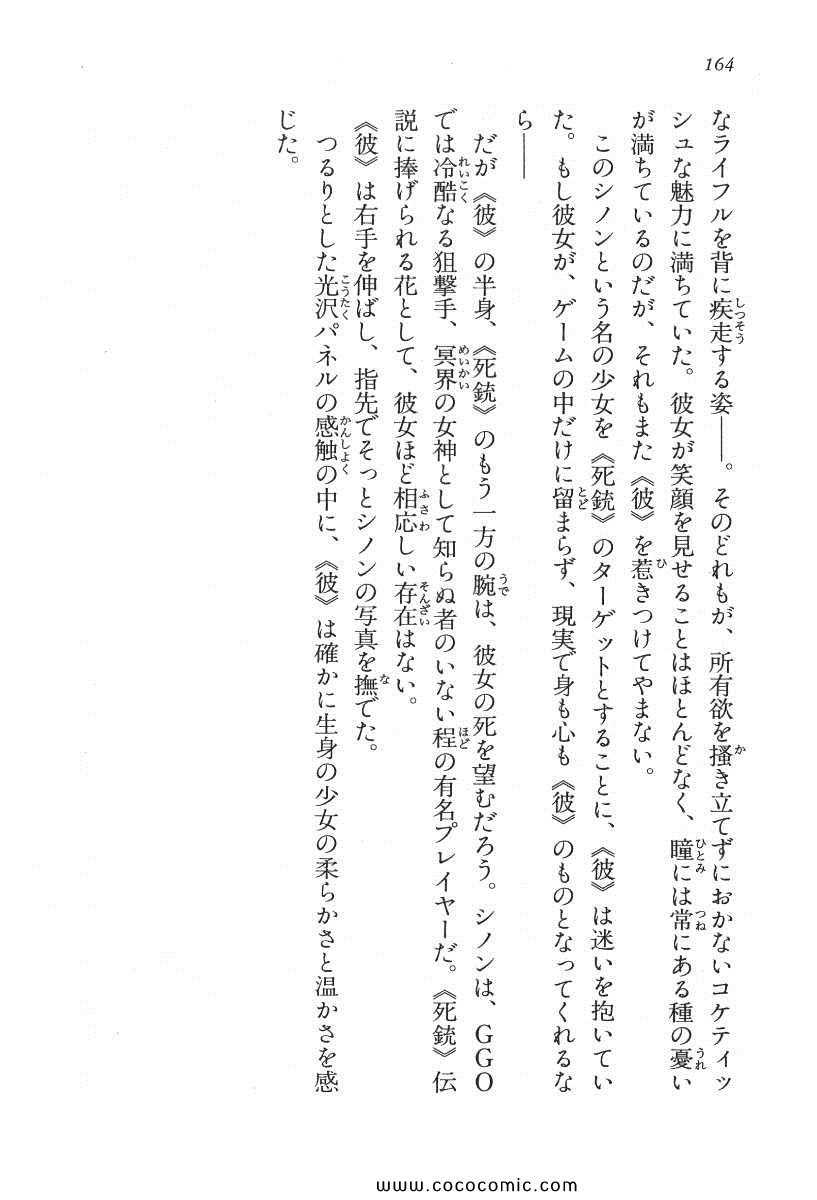 164
なライフルを背に疾走する姿――。そのどれもが、所有欲を掻き立てずにおかないコケティッ
シュな魅力に満ちていた。彼女が笑顔を見せることはほとんどなく、瞳には常にある種の憂い
が満ちているのだが、それもまた《彼》を惹きつけてやまない。
このシノンという名の少女を《死銃》のターゲットとすることに、《彼》は迷いを抱いてい
た。もし彼女が、ゲームの中だけに留まらず、現実で身も心も《彼》のものとなってくれるな
ら――
だが《彼》の半身、《死銃》のもう一方の腕は、彼女の死を望むだろう。シノンは、GGO
では冷酷なる狙撃手、冥界の女神として知らぬ者のいない程の有名プレイヤーだ。《死銃》伝
説に捧げられる花として、彼女ほど相応しい存在はない。
《彼》は右手を伸ばし、指先でそっとシノンの写真を撫でた。
つるりとした光沢パネルの感触の中に、《彼》は確かに生身の少女の柔らかさと温かさを感
じた。
www.cococomic.com